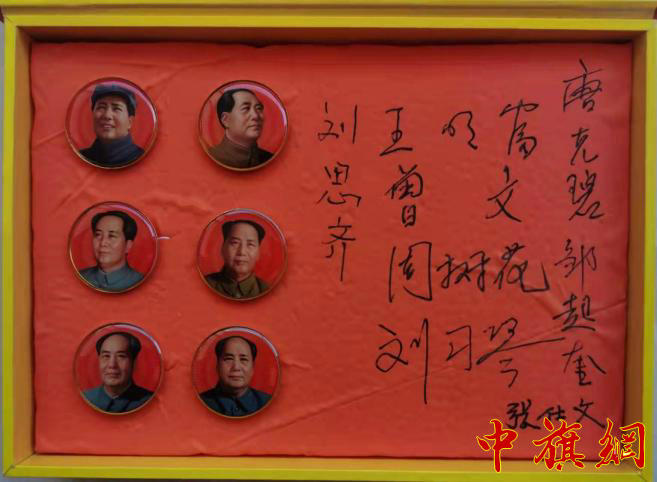 刘思齐
王明富
曾文
周树花
刘习
唐克碧
邹起奎
张仕文
中旗網